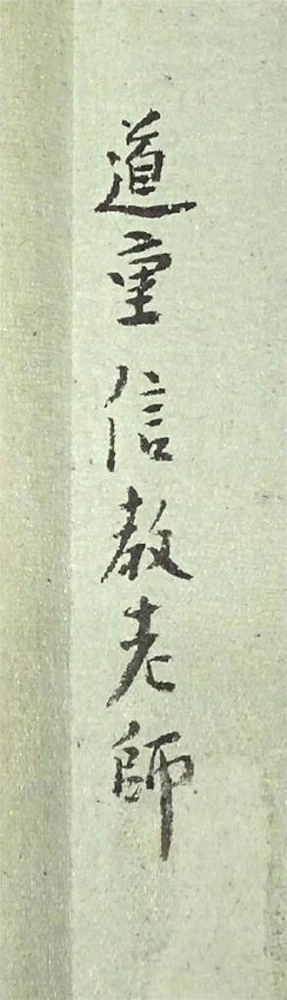 道重信教老師